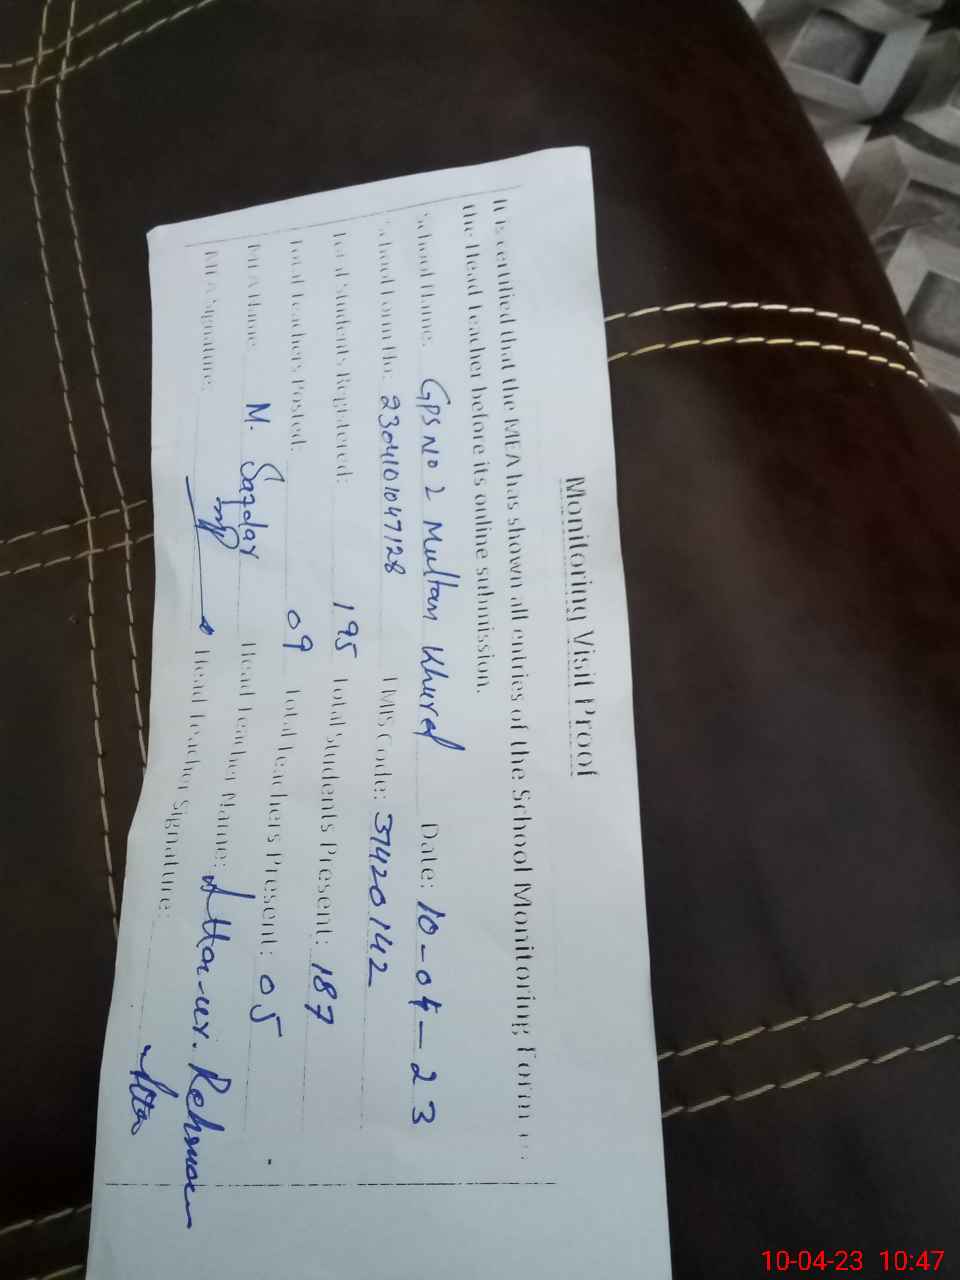 Monitoring Visit Proof
It is certified that the MEA has shown all entries of the School Monitoring Form to
the Head Teacher before its online submission.
School Name: GPS No 2 Multan Khurd Date: 10-04-23
School Form No: 2304101047128 EMIS Code: 37420142
Total Students Registered: 195 Total Students Present: 187
Total Teachers Posted: 09 Total Teachers Present: 05
MEA Name: M. Safdar Head Teacher Name: Atta-ur-Rehman
MEA Signature: Head Teacher Signature: Atta
10-04-23 10:47